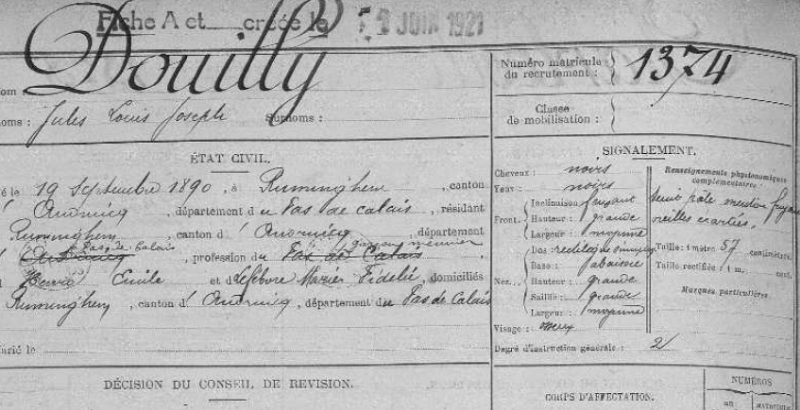 Fiche A et créée le 1 JUIN 1921
Douilly
Numéro matricule du recrutement : 1374
noms : Jules Louis Joseph Surnoms :
Classe de mobilisation :
ÉTAT CIVIL.
SIGNALEMENT.
é le 19 Septembre 1890, à Ruminghem, canton
d'Audruicq, département du Pas de Calais, résidant
Ruminghem, canton d'Audruicq, département
Pas-de-Calais, profession de garçon meunier
Emile et de Lefebvre Marie Fidélie, domiciliés
Ruminghem, canton d'Audruicq, département du Pas de Calais
arié le
Cheveux : noirs
Yeux : noirs
Front. Inclinaison : fuyant
Hauteur : grande
Largeur : moyenne
Nez. Dos : rectiligne
Base :
Hauteur : grande
Saillie : grande
Largeur : moyenne
Visage :
Degré d'instruction générale : 2
Renseignements physionomiques complémentaires :
menton
oreilles écartées
Taille : 1 mètre 57 centimètres.
Taille rectifiée : 1 m. cent.
Marques particulières :
DÉCISION DU CONSEIL DE REVISION.
CORPS D'AFFECTATION.
NUMÉROS
au